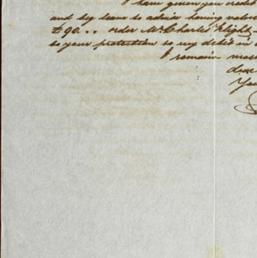 I have given you credit
and beg leave to advise having valued
£90... order Mr Charles Hight
to your protection to my debit in
I remain most
dear
You